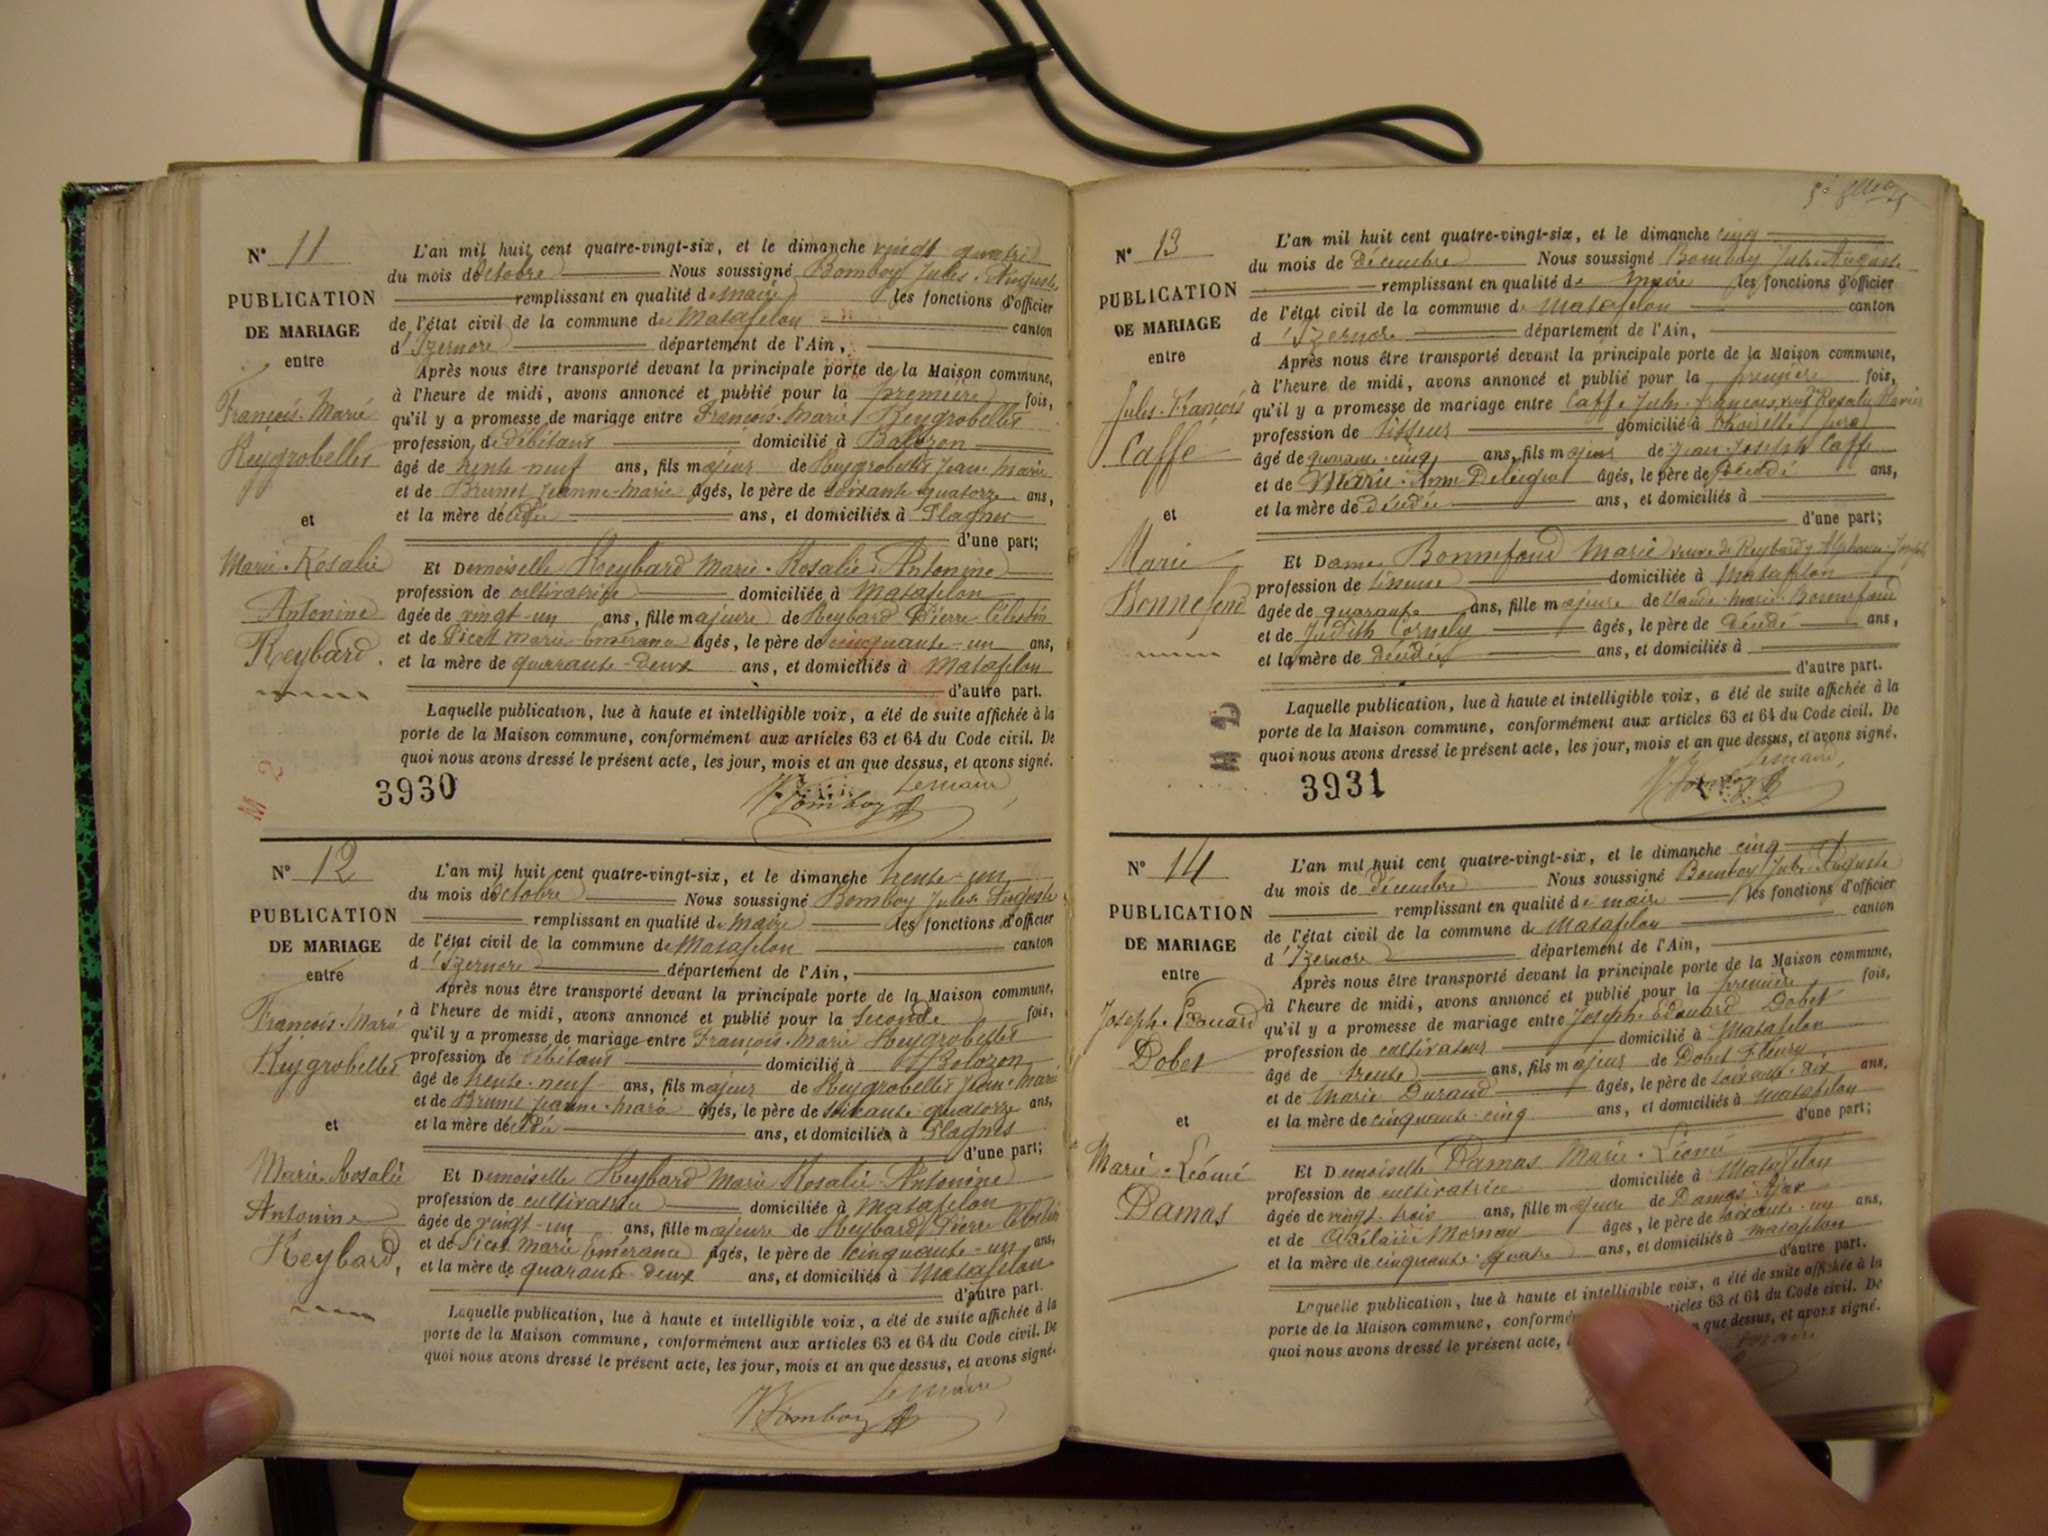 N° 11
PUBLICATION
DE MARIAGE
entre
François-Marie
Reygrobellet
et
Marie-Rosalie
Antonine
Reybard.
L'an mil huit cent quatre-vingt-six, et le dimanche vingt quatre
du mois d'octobre Nous soussigné Bomboy Jules-Auguste
remplissant en qualité de maire les fonctions d'officier
de l'état civil de la commune de Matafelon canton
d'Izernore département de l'Ain,
Après nous être transporté devant la principale porte de la Maison commune,
à l'heure de midi, avons annoncé et publié pour la première fois,
qu'il y a promesse de mariage entre François-Marie Reygrobellet
profession de débitant domicilié à Bolozon
âgé de trente-neuf ans, fils majeur de Reygrobellet Jean-Marie
et de Brunet Jeanne-Marie âgés, le père de soixante quatorze ans,
et la mère décédée ans, et domiciliés à Plagnes
d'une part;
Et Demoiselle Reybard Marie-Rosalie-Antonine
profession de cultivatrice domiciliée à Matafelon
âgée de vingt-un ans, fille majeure de Reybard Pierre-Célestin
et de Picot Marie Emérance âgés, le père de cinquante-un ans,
et la mère de quarante-deux ans, et domiciliés à Matafelon
d'autre part.
Laquelle publication, lue à haute et intelligible voix, a été de suite affichée à la
porte de la Maison commune, conformément aux articles 63 et 64 du Code civil. De
quoi nous avons dressé le présent acte, les jour, mois et an que dessus, et avons signé.
Le maire
3930 Bomboy
N° 12
PUBLICATION
DE MARIAGE
entre
François-Marie
Reygrobellet
et
Marie-Rosalie
Antonine
Reybard,
L'an mil huit cent quatre-vingt-six, et le dimanche trente-un
du mois d'octobre Nous soussigné Bomboy Jules-Auguste
remplissant en qualité de maire les fonctions d'officier
de l'état civil de la commune de Matafelon canton
d'Izernore département de l'Ain,
Après nous être transporté devant la principale porte de la Maison commune,
à l'heure de midi, avons annoncé et publié pour la seconde fois,
qu'il y a promesse de mariage entre François-Marie Reygrobellet
profession de débitant domicilié à Bolozon
âgé de trente-neuf ans, fils majeur de Reygrobellet Jean-Marie
et de Brunet Jeanne-Marie âgés, le père de soixante quatorze ans,
et la mère décédée ans, et domiciliés à Plagnes
d'une part;
Et Demoiselle Reybard Marie Rosalie-Antonine
profession de cultivatrice domiciliée à Matafelon
âgée de vingt-un ans, fille majeure de Reybard Pierre Célestin
et de Picot Marie Emérance âgés, le père de cinquante-un ans,
et la mère de quarante-deux ans, et domiciliés à Matafelon
d'autre part.
Laquelle publication, lue à haute et intelligible voix, a été de suite affichée à la
porte de la Maison commune, conformément aux articles 63 et 64 du Code civil. De
quoi nous avons dressé le présent acte, les jour, mois et an que dessus, et avons signé.
Le maire
Bomboy
N° 13
PUBLICATION
DE MARIAGE
entre
Jules-François
Caffe
et
Marie
Bonnefond
L'an mil huit cent quatre-vingt-six, et le dimanche cinq
du mois de décembre Nous soussigné Bomboy Jules-Auguste
remplissant en qualité de maire les fonctions d'officier
de l'état civil de la commune de Matafelon canton
d'Izernore département de l'Ain,
Après nous être transporté devant la principale porte de la Maison commune,
à l'heure de midi, avons annoncé et publié pour la première fois,
qu'il y a promesse de mariage entre Caffe Jules-François, veuf Rosalie
profession de tisseur domicilié à Jura
âgé de quarante-cinq ans, fils majeur de Jean-Joseph Caffe
et de Marie-Anne âgés, le père de décédé ans,
et la mère de décédée ans, et domiciliés à
d'une part;
Et Dame Bonnefond Marie veuve de Reybard Alphonse-Joseph
profession de domiciliée à Matafelon
âgée de quarante ans, fille majeure de Claude-Marie Bonnefond
et de Judith Cornely âgés, le père de décédé ans,
et la mère de décédée ans, et domiciliés à
d'autre part.
Laquelle publication, lue à haute et intelligible voix, a été de suite affichée à la
porte de la Maison commune, conformément aux articles 63 et 64 du Code civil. De
quoi nous avons dressé le présent acte, les jour, mois et an que dessus, et avons signé.
Le maire,
3931 Bomboy
N° 14
PUBLICATION
DE MARIAGE
entre
Joseph-Edouard
Dobet
et
Marie-Léonie
Damas
L'an mil huit cent quatre-vingt-six, et le dimanche cinq
du mois de décembre Nous soussigné Bomboy Jules-Auguste
remplissant en qualité de maire les fonctions d'officier
de l'état civil de la commune de Matafelon canton
d'Izernore département de l'Ain,
Après nous être transporté devant la principale porte de la Maison commune,
à l'heure de midi, avons annoncé et publié pour la première fois,
qu'il y a promesse de mariage entre Joseph-Edouard Dobet
profession de cultivateur domicilié à Matafelon
âgé de trente ans, fils majeur de Dobet Fleury
et de Marie Durand âgés, le père de soixante-dix ans,
et la mère de cinquante-cinq ans, et domiciliés à Matafelon
d'une part;
Et Demoiselle Damas Marie-Léonie
profession de cultivatrice domiciliée à Matafelon
âgée de vingt-trois ans, fille majeure de Damas Ajax
et de Adélaïde Mornay âgés, le père de soixante-un ans,
et la mère de cinquante-quatre ans, et domiciliés à Matafelon
d'autre part.
Laquelle publication, lue à haute et intelligible voix, a été de suite affichée à la
porte de la Maison commune, conformé articles 63 et 64 du Code civil. De
quoi nous avons dressé le présent acte, l an que dessus, et avons signé.